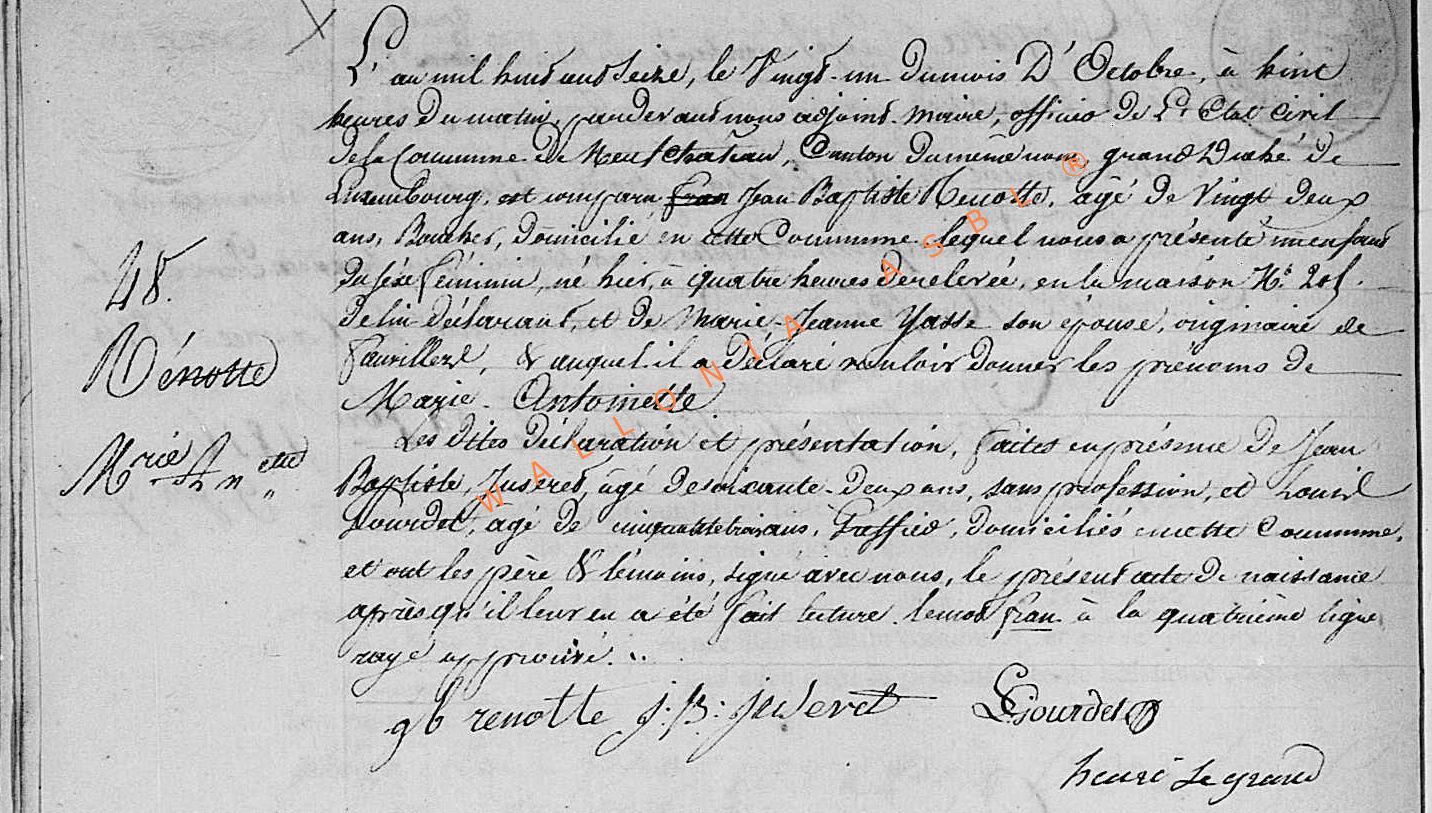 48.
Rénotte
Mrie Antnette
L'an mil huit cent seize, le Vingt-un du mois D'Octobre, à huit
heures du matin, pardevant nous adjoint-maire, officier de L'Etat Civil
de la Commune de Neufchâteau, Canton du même nom, grand Duché de
Luxembourg, est comparu fran Jean Baptiste Renotte, agé de Vingt deux
ans, Boucher, domicilié en cette Commune lequel nous a présenté un enfant
du sexe féminin, né hier, à quatre heures de relevée, en la maison N°
de lui déclarant, et de Marie-Jeanne Yasse son épouse, originaire de
fauvillers, & auquel il a déclaré vouloir donner les prénoms de
Marie-Antoinette
Les dites déclaration et présentation, faites en présence de Jean
Baptiste, Juseret, âgé de soixante-deux ans, sans profession, et Louis
Gourdet, agé de cinquante trois ans, Greffier, domiciliés en cette Commune,
et ont les père & témoins, signé avec nous, le présent acte de naissance
après qu'il leur en a été fait lecture. le mot fran à la quatrième ligne
rayé approuvé.
jb renotte J:B: juseret LGourdet
henri Legrand
WALLONIA ASBL ®